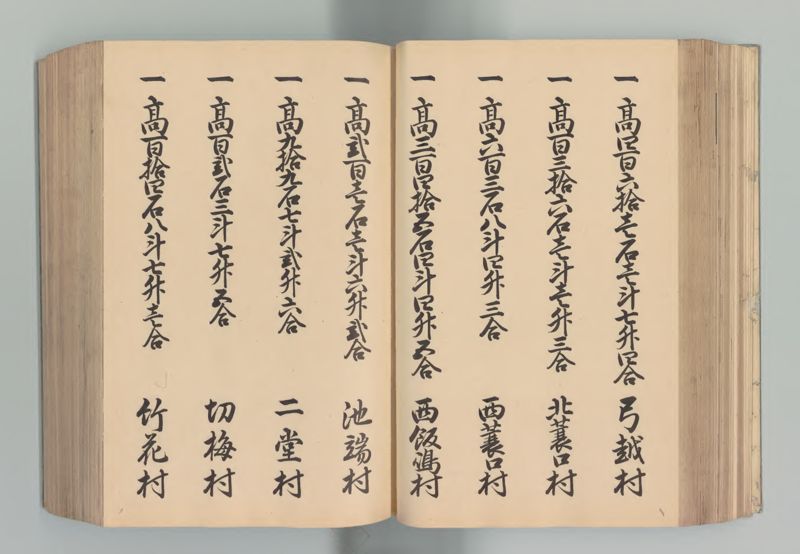 一 高四百六拾壱石壱斗七升四合 弓越村
一 高百三拾六石壱斗壱升三合 北蓑口村
一 高六百三石八斗四升三合 西蓑口村
一 高三百四拾五石四斗四升五合 西飯鴻村
一 高弐百壱石壱斗六升弐合 池端村
一 高九拾九石七斗弐升六合 二堂村
一 高百弐石三斗七升五合 切梅村
一 高百拾四石八斗七升壱合 竹花村